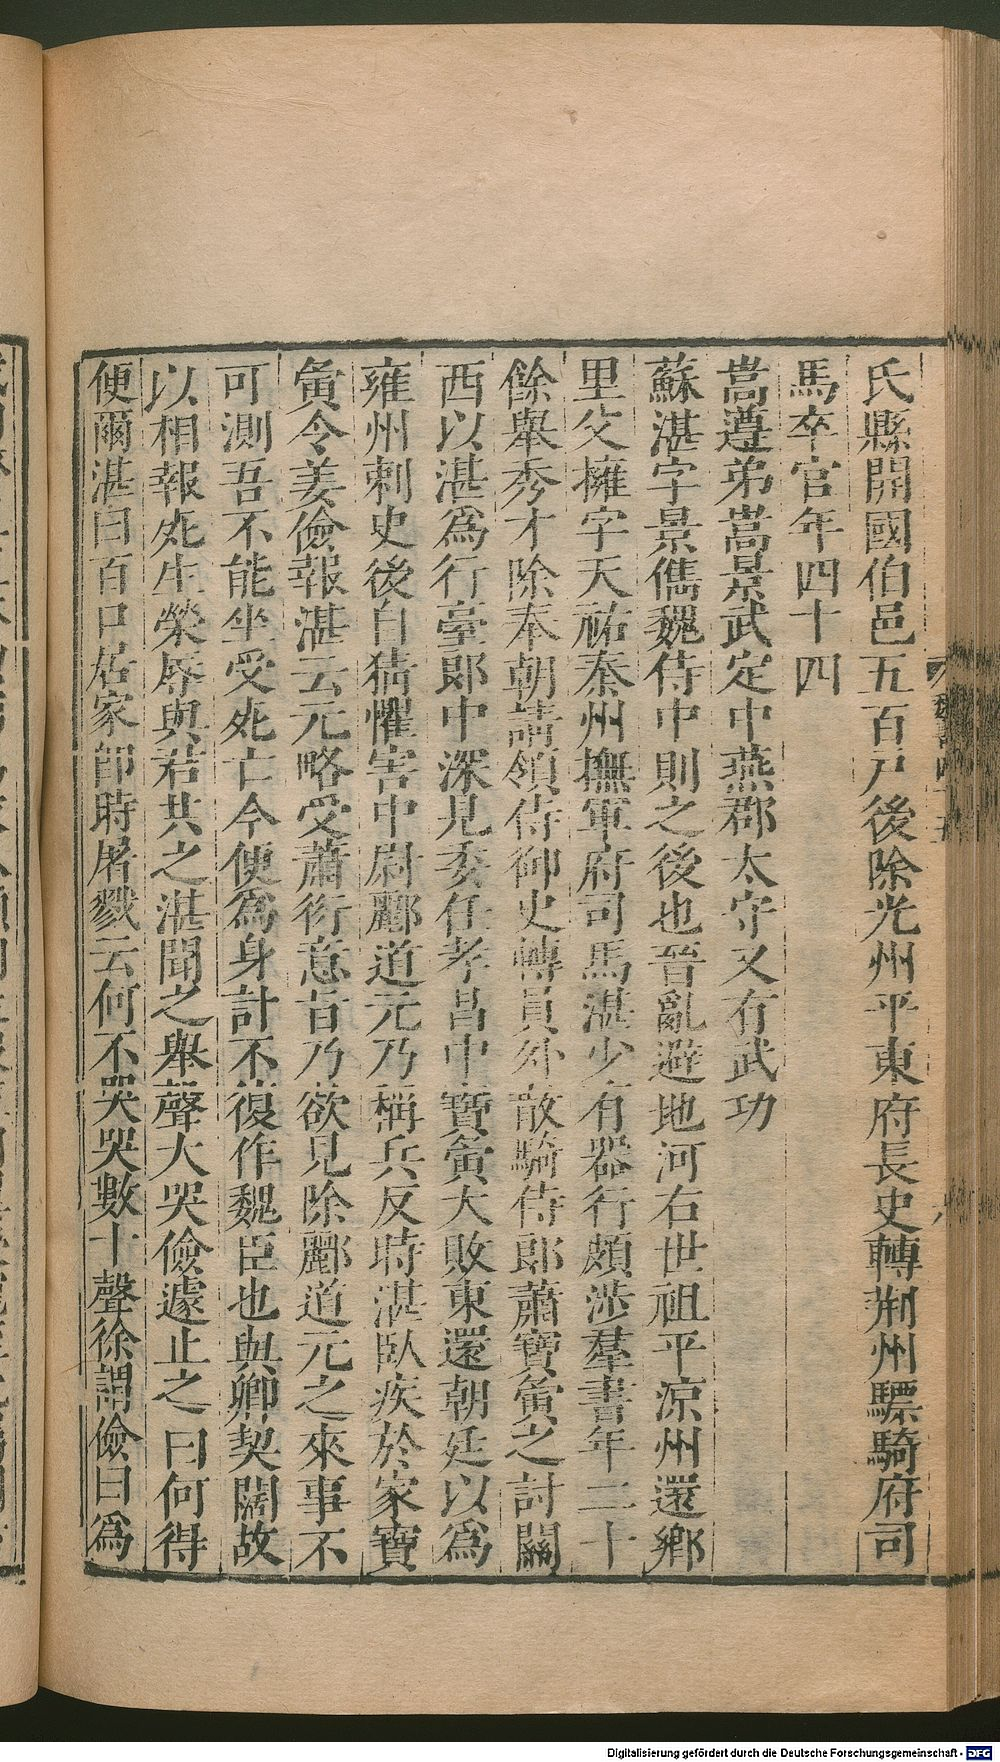 氏縣開國伯邑五百戶後除光州平東府長史轉荆州驃騎府司
馬卒官年四十四
嵩遵弟嵩景武定中燕郡太守又有武功
蘇湛字景儁魏侍中則之後也晉亂避地河右世祖平涼州還鄉
里父擁字天祐秦州撫軍府司馬湛少有器行頗涉羣書年二十
餘舉秀才除奉朝請領侍御史轉員外散騎侍郎蕭寶夤之討關
西以湛爲行臺郎中深見委任孝昌中寶夤大敗東還朝廷以爲
雍州刺史後自猜懼害中尉酈道元乃稱兵反時湛臥疾於家寶
夤令姜儉報湛云元略受蕭衍意旨乃欲見除酈道元之來事不
可測吾不能坐受死亡今便爲身計不復作魏臣也與卿契闊故
以相報死生榮辱與君共之湛聞之舉聲大哭儉遽止之曰何得
便爾湛曰百口居家卽時屠戮云何不哭哭數十聲徐謂儉曰爲
Digitalisierung gefördert durch die Deutsche Forschungsgemeinschaft - DFG